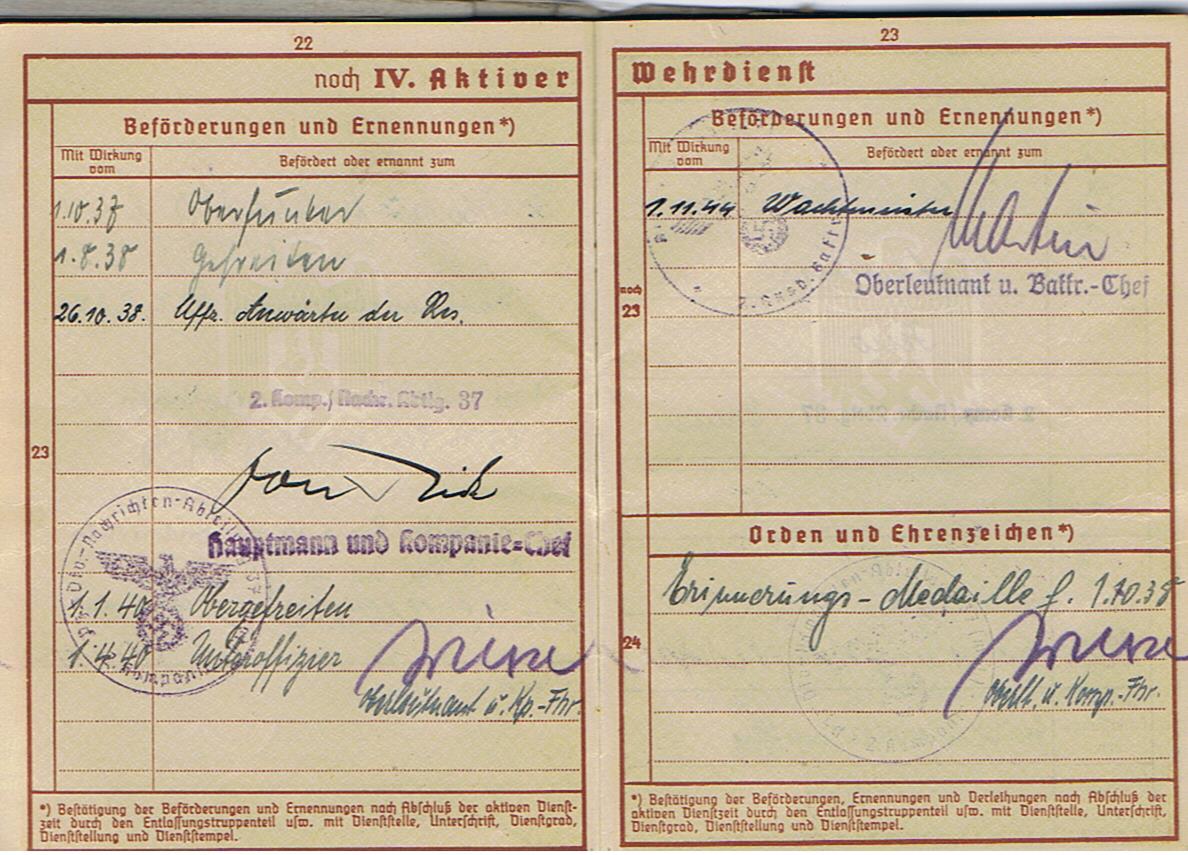 22
noch IV. Aktiver
Beförderungen und Ernennungen*)
Mit Wirkung vom
Befördert oder ernannt zum
1.10.37 Oberfunker
1.8.38 Gefreiten
26.10.38. Uffz. Anwärter der Res.
2. Komp./Nachr. Abtlg. 37
23
Hauptmann und Kompanie=Chef
1.1.40 Obergefreiten
1.4.40 Unteroffizier
Oberleutnant u. Kp.-Fhr.
*) Bestätigung der Beförderungen und Ernennungen nach Abschluß der aktiven Dienst-
zeit durch den Entlassungstruppenteil usw. mit Dienststelle, Unterschrift, Dienstgrad,
Dienststellung und Dienststempel.
23
Wehrdienst
Beförderungen und Ernennungen*)
Mit Wirkung vom
Befördert oder ernannt zum
1.11.44 Wachtmeister
Martin
Oberleutnant u. Battr.-Chef
noch 23
Orden und Ehrenzeichen*)
Erinnerungs-Medaille f. 1.10.38
24
Oberlt. u. Komp.-Fhr.
*) Bestätigung der Beförderungen, Ernennungen und Verleihungen nach Abschluß der
aktiven Dienstzeit durch den Entlassungstruppenteil usw. mit Dienststelle, Unterschrift,
Dienstgrad, Dienststellung und Dienststempel.